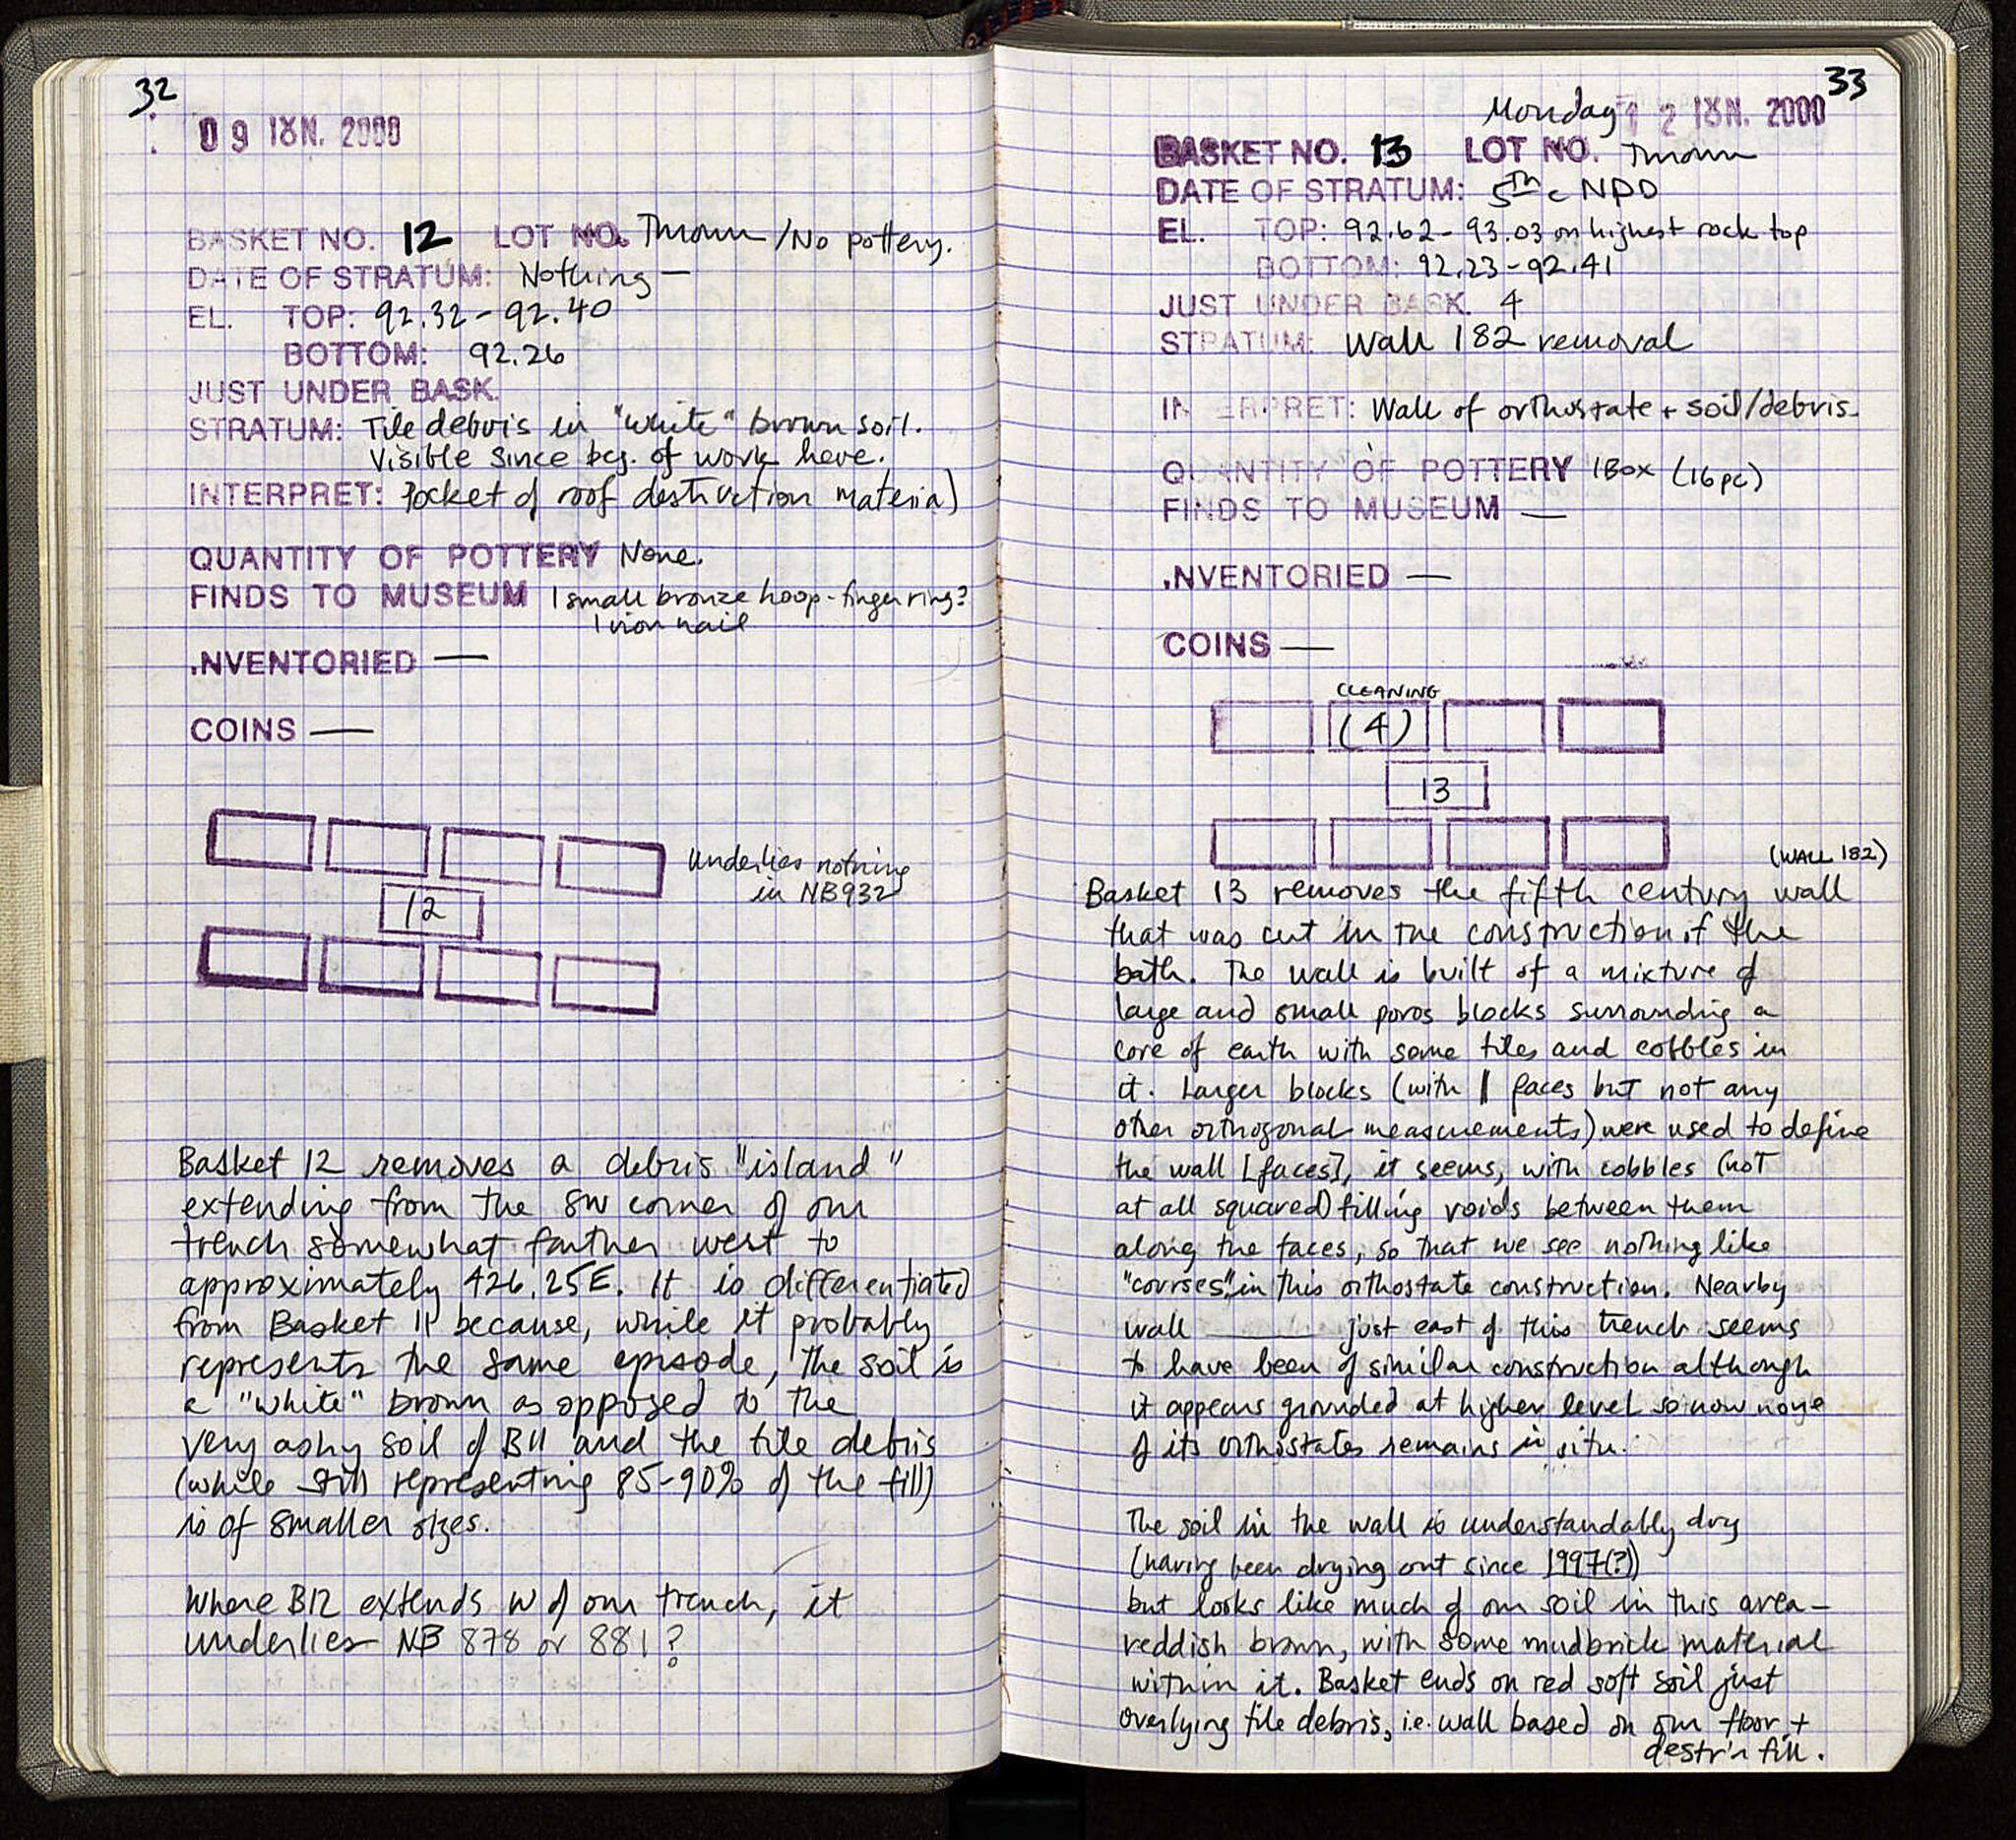 32
09 ΙΟΥΝ. 2000
BASKET NO. 12 LOT NO. Thrown / No pottery.
DATE OF STRATUM: Nothing —
EL. TOP: 92.32 - 92.40
BOTTOM: 92.26
JUST UNDER BASK.
STRATUM: Tile debris in "white" brown soil.
Visible since beg. of work here.
INTERPRET: Pocket of roof destruction material
QUANTITY OF POTTERY None.
FINDS TO MUSEUM 1 small bronze hoop - finger ring?
1 iron nail
INVENTORIED —
COINS —
Underlies nothing
in NB932
12
Basket 12 removes a debris "island"
extending from the SW corner of our
trench somewhat farther west to
approximately 426.25E. It is differentiated
from Basket 11 because, while it probably
represents the same episode, the soil is
a "white" brown as opposed to the
very ashy soil of B11 and the tile debris
(while still representing 85-90% of the fill)
is of smaller sizes.
Where B12 extends W of our trench, it
underlies NB 878 or 881?
33
Monday 12 ΙΟΥΝ. 2000
BASKET NO. 13 LOT NO. Thrown
DATE OF STRATUM: 5th c NPD
EL. TOP: 92.62 - 93.03 on highest rock top
BOTTOM: 92.23 - 92.41
JUST UNDER BASK. 4
STRATUM: Wall 182 removal
INTERPRET: Wall of orthostate + soil/debris.
QUANTITY OF POTTERY 1 Box (16 pc)
FINDS TO MUSEUM —
INVENTORIED —
COINS —
CLEANING
(4)
13
(WALL 182)
Basket 13 removes the fifth century wall
that was cut in the construction of the
bath. The wall is built of a mixture of
large and small poros blocks surrounding a
core of earth with some tiles and cobbles in
it. Larger blocks (with || faces but not any
other orthogonal measurements) were used to define
the wall [faces], it seems, with cobbles (not
at all squared) filling voids between them
along the faces, so that we see nothing like
"courses" in this orthostate construction. Nearby
wall ______ just east of this trench seems
to have been of similar construction although
it appears grounded at higher level so now none
of its orthostates remains in situ.
The soil in the wall is understandably dry
(having been drying out since 1997(?))
but looks like much of our soil in this area -
reddish brown, with some mudbrick material
within it. Basket ends on red soft soil just
overlying tile debris, i.e. wall based on our floor +
destr'n fill.